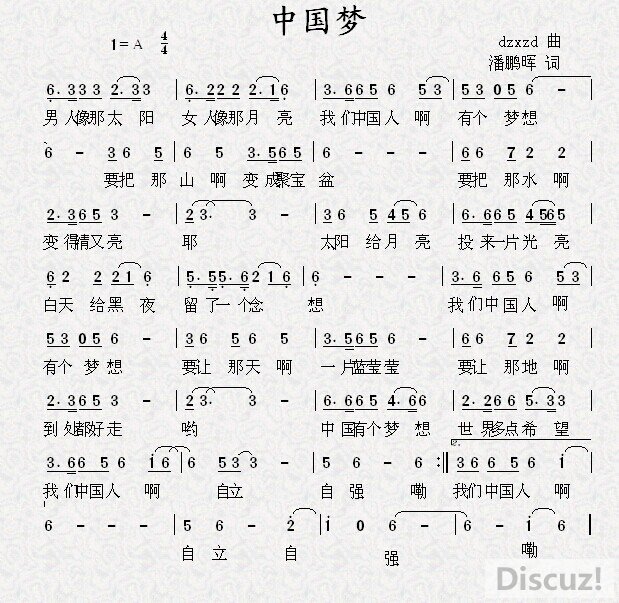 中国梦
1=A 4/4
dzxzd 曲
潘鹏晖 词
6. 3 3 3 3 2. 3 3 3 | 6. 2 2 2 2 2. 1 6 | 3. 6 6 5 6 5 3 | 5 3 0 5 6 - |
男人像那太阳 女人像那月亮 我们中国人啊 有个梦想
6 - 3 6 5 | 6 5 3. 5 6 5 | 6 - - - | 6 6 7 2 2 |
要把那山啊变成聚宝盆 要把那水啊
2. 3 6 5 3 - | 2 3. 3 - | 3 6 5 4 5 6 | 6. 6 6 5 4 5 6 5 |
变得情又亮 耶 太阳给月亮 投来一片光亮
6 2 2 2 1 6 | 5. 5 5. 6 2 1 6 | 6 - - - | 3. 6 6 5 6 5 3 |
白天给黑夜 留了一个念想 我们中国人啊
5 3 0 5 6 - | 3 6 5 6 5 | 3. 5 6 5 6 - | 6 6 7 2 2 |
有个梦想 要让那天啊 一片蓝莹莹 要让那地啊
2. 3 6 5 3 - | 2 3. 3 - | 6. 6 6 5 4. 6 6 | 2. 2 6 6 5. 3 3 |
到处都好走 哟 中国有个梦想 世界多点希望
3. 6 6 5 6 1 6 | 6 5 3 3 - | 5 6 - 6 :|| 3 6 6 5 6 1 |
我们中国人啊 自立 自强嘞 我们中国人啊
6 - - - | 5 6 - 2 | 1 0 6 - | 6 - 1 6 |
自立自强嘞
Discuz!